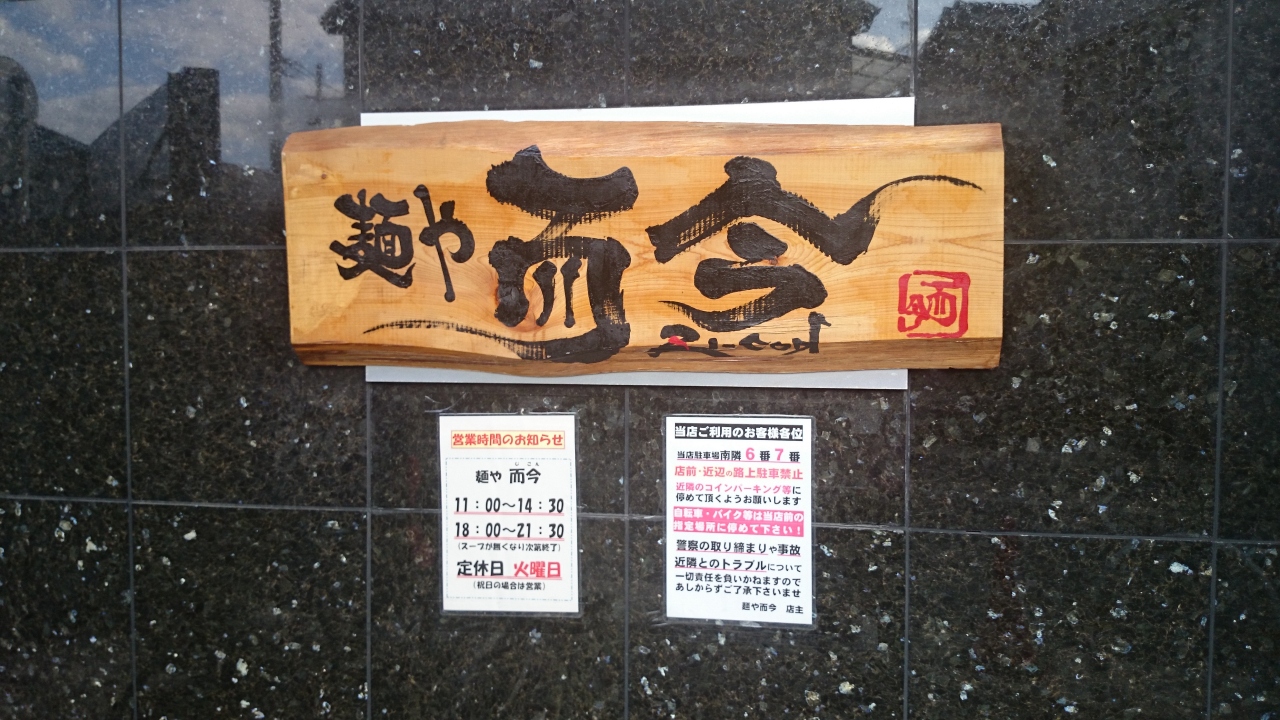 麺や 而今
Zi-con
営業時間のお知らせ
じこん
麺や 而今
11：00～14：30
18：00～21：30
（スープが無くなり次第終了）
定休日 火曜日
（祝日の場合は営業）
当店ご利用のお客様各位
当店駐車場南隣 6 番 7 番
店前・近辺の路上駐車禁止
近隣のコインパーキング等に
停めて頂くようお願いします
自転車・バイク等は当店前の
指定場所に停めて下さい！
警察の取り締まりや事故
近隣とのトラブルについて
一切責任を負いかねますので
あしからずご了承下さいませ
麺や而今 店主